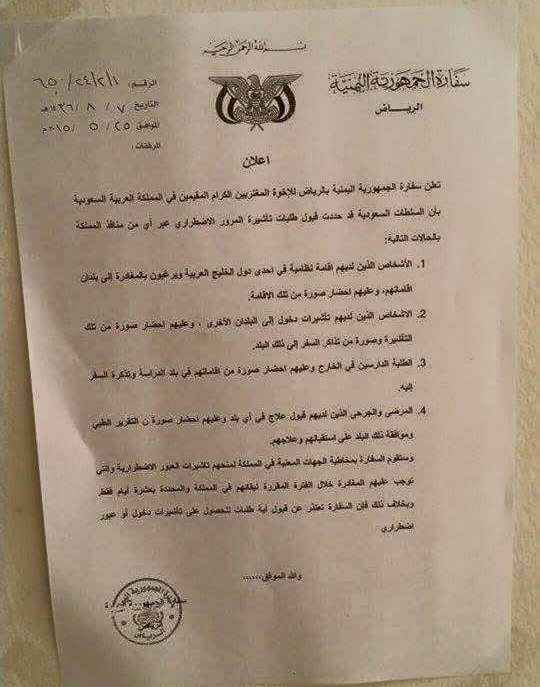 بسم الله الرحمن الرحيم
سفارة الجمهورية اليمنية
الرياض
الرقم: ٦٥٠/٢٤/٢/١
التاريخ ٧ / ٨ / ١٤٣٦هـ
الموافق ٢٥ / ٥ / ٢٠١٥م
المرفقات:
اعلان
تعلن سفارة الجمهورية اليمنية بالرياض للإخوة المغتربين الكرام المقيمين في المملكة العربية السعودية
بأن السلطات السعودية قد حددت قبول طلبات تأشيرة المرور الاضطراري عبر أي من منافذ المملكة
بالحالات التالية:
1. الأشخاص الذين لديهم اقامة نظامية في احدى دول الخليج العربية ويرغبون بالمغادرة إلى بلدان
اقاماتهم، وعليهم احضار صورة من تلك الاقامة.
2. الاشخاص الذين لديهم تأشيرات دخول إلى البلدان الأخرى ، وعليهم احضار صورة من تلك
التأشيرة وصورة من تذاكر السفر إلى ذلك البلد.
3. الطلبة الدارسين في الخارج وعليهم احضار صورة من اقاماتهم في بلد الدراسة وتذكرة السفر
إليه.
4. المرضى والجرحى الذين لديهم قبول علاج في أي بلد وعليهم احضار صورة ن التقرير الطبي
وموافقة ذلك البلد على استقبالهم وعلاجهم.
وستقوم السفارة بمخاطبة الجهات المعنية في المملكة لمنحهم تاشيرات العبور الاضطرارية والتي
توجب عليهم المغادرة خلال الفترة المقررة لبقائهم في المملكة والمحددة بعشرة أيام فقط
وبخلاف ذلك فإن السفارة تعتذر عن قبول أية طلبات للحصول على تأشيرات دخول أو عبور
اضطراري
والله الموفق......